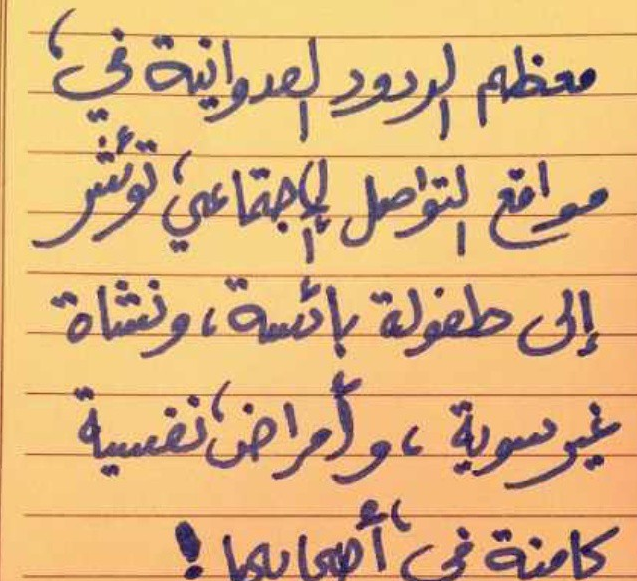 معظم الردود العدوانية في
مواقع التواصل الإجتماعي تؤشر
إلى طفولة بائسة، ونشاة
غير سوية، وأمراض نفسية
كامنة في أصحابها!